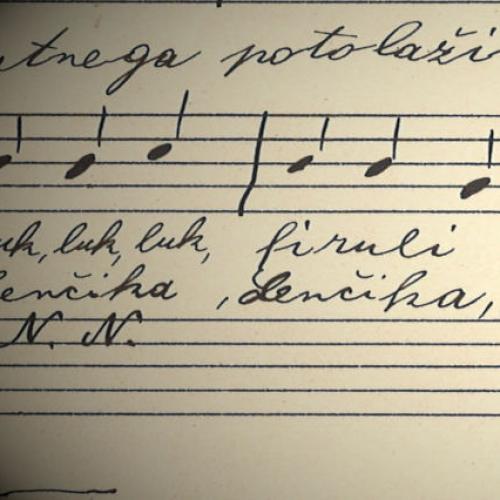 tnega potolaži
uk, luk, luk, firuli
enčika, Lenčika,
N. N.